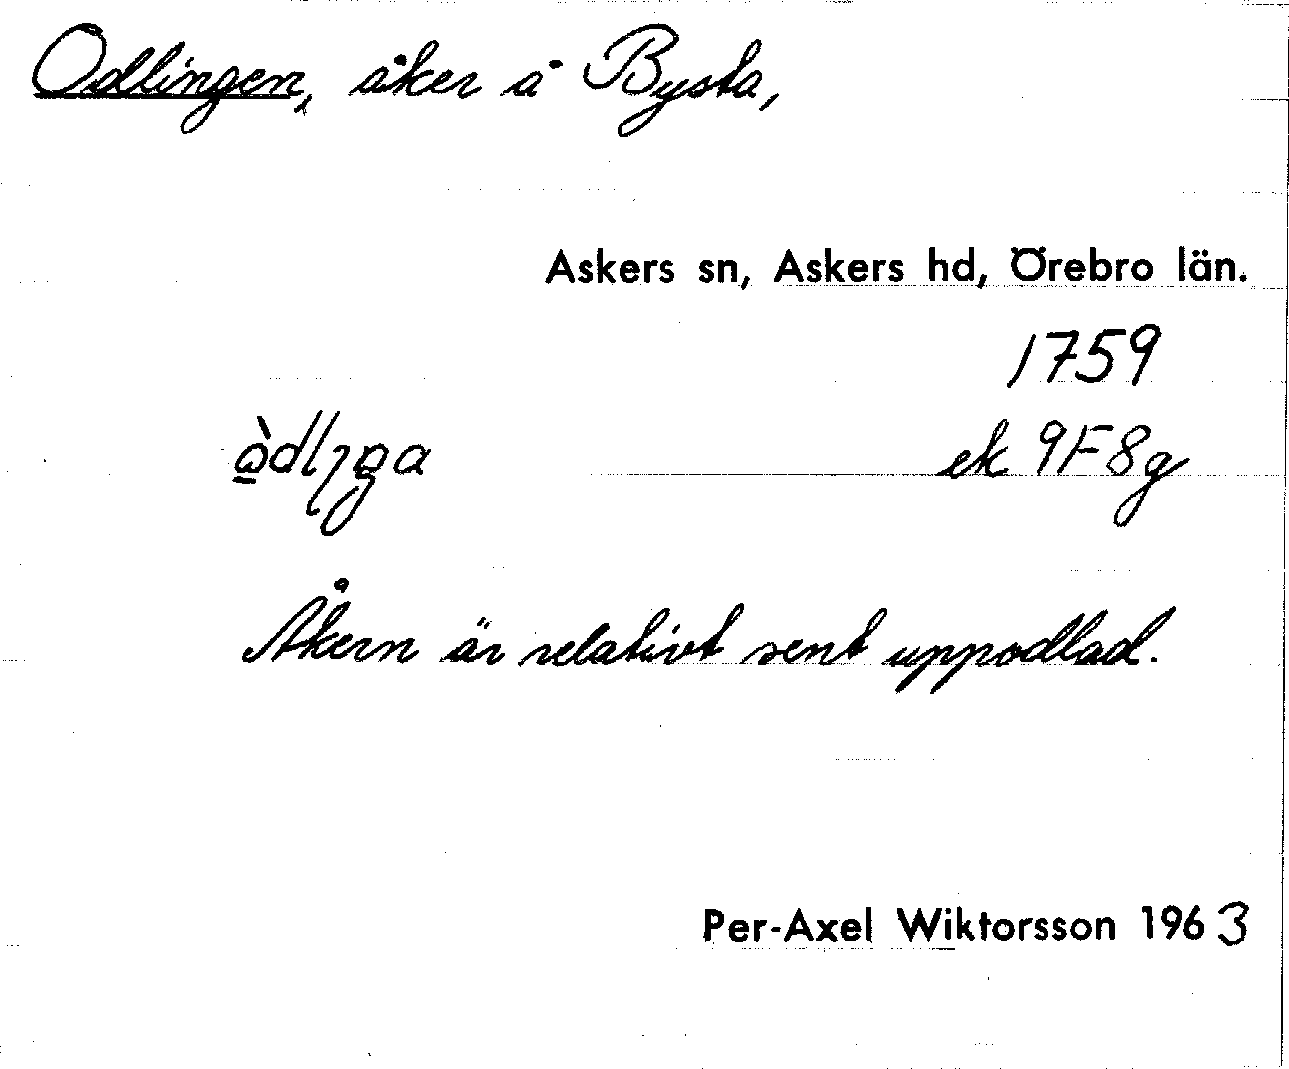 Odlingen, åker å Bysta,
Askers sn, Askers hd, Örebro län.
1759
ek 9F8g
Åkern är relativt sent uppodlad.
Per-Axel Wiktorsson 1963